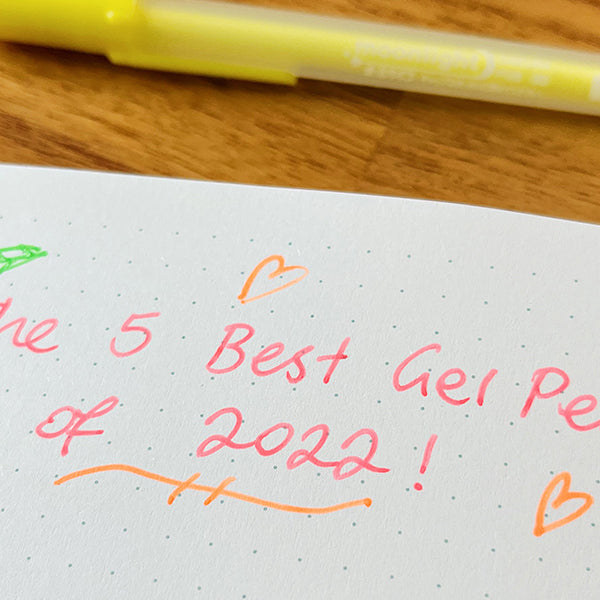 he 5 Best Gel Pe
of 2022!